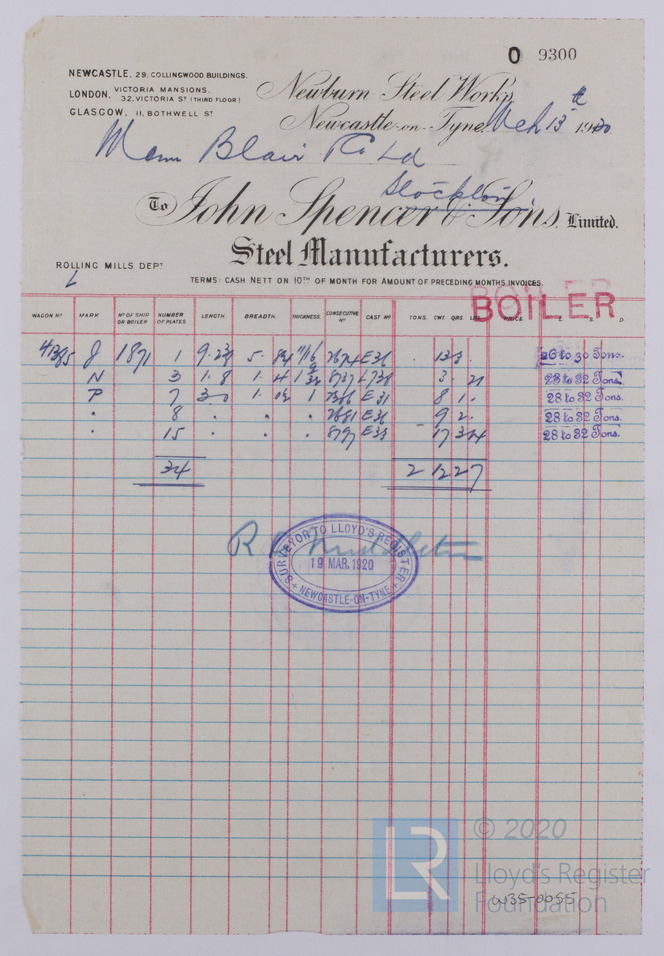 0 9300
NEWCASTLE, 29, COLLINGWOOD BUILDINGS.
LONDON, VICTORIA MANSIONS,
32, VICTORIA ST (THIRD FLOOR)
GLASGOW, 11, BOTHWELL ST
Newburn Steel Works,
Newcastle-on-Tyne, Mch 13th 1920
Blair & Co Ld
Stockton
To John Spencer & Sons, Limited.
Steel Manufacturers.
ROLLING MILLS DEPT
TERMS: CASH NETT ON 10TH OF MONTH FOR AMOUNT OF PRECEDING MONTHS INVOICES.
BOILER
WAGON No MARK No OF SHIP OR BOILER NUMBER OF PLATES LENGTH. BREADTH. THICKNESS. CONSECUTIVE No CAST No TONS. CWT QRS LBS PRICE £ S. D.
1871 1 E36 26 to 30 Tons.
N 3 1. 8 1. 4 3. 21 28 to 32 Tons.
P 7 3 0 1 E31 8 1. 28 to 32 Tons.
" 8 " " " E36 9 2. 28 to 32 Tons.
" 15 28 to 32 Tons.
34 2 12 2 7
R Middleton
SURVEYOR TO LLOYD'S REGISTER
19 MAR. 1920
NEWCASTLE-ON-TYNE
© 2020
LR Lloyd's Register
Foundation
W35-0055